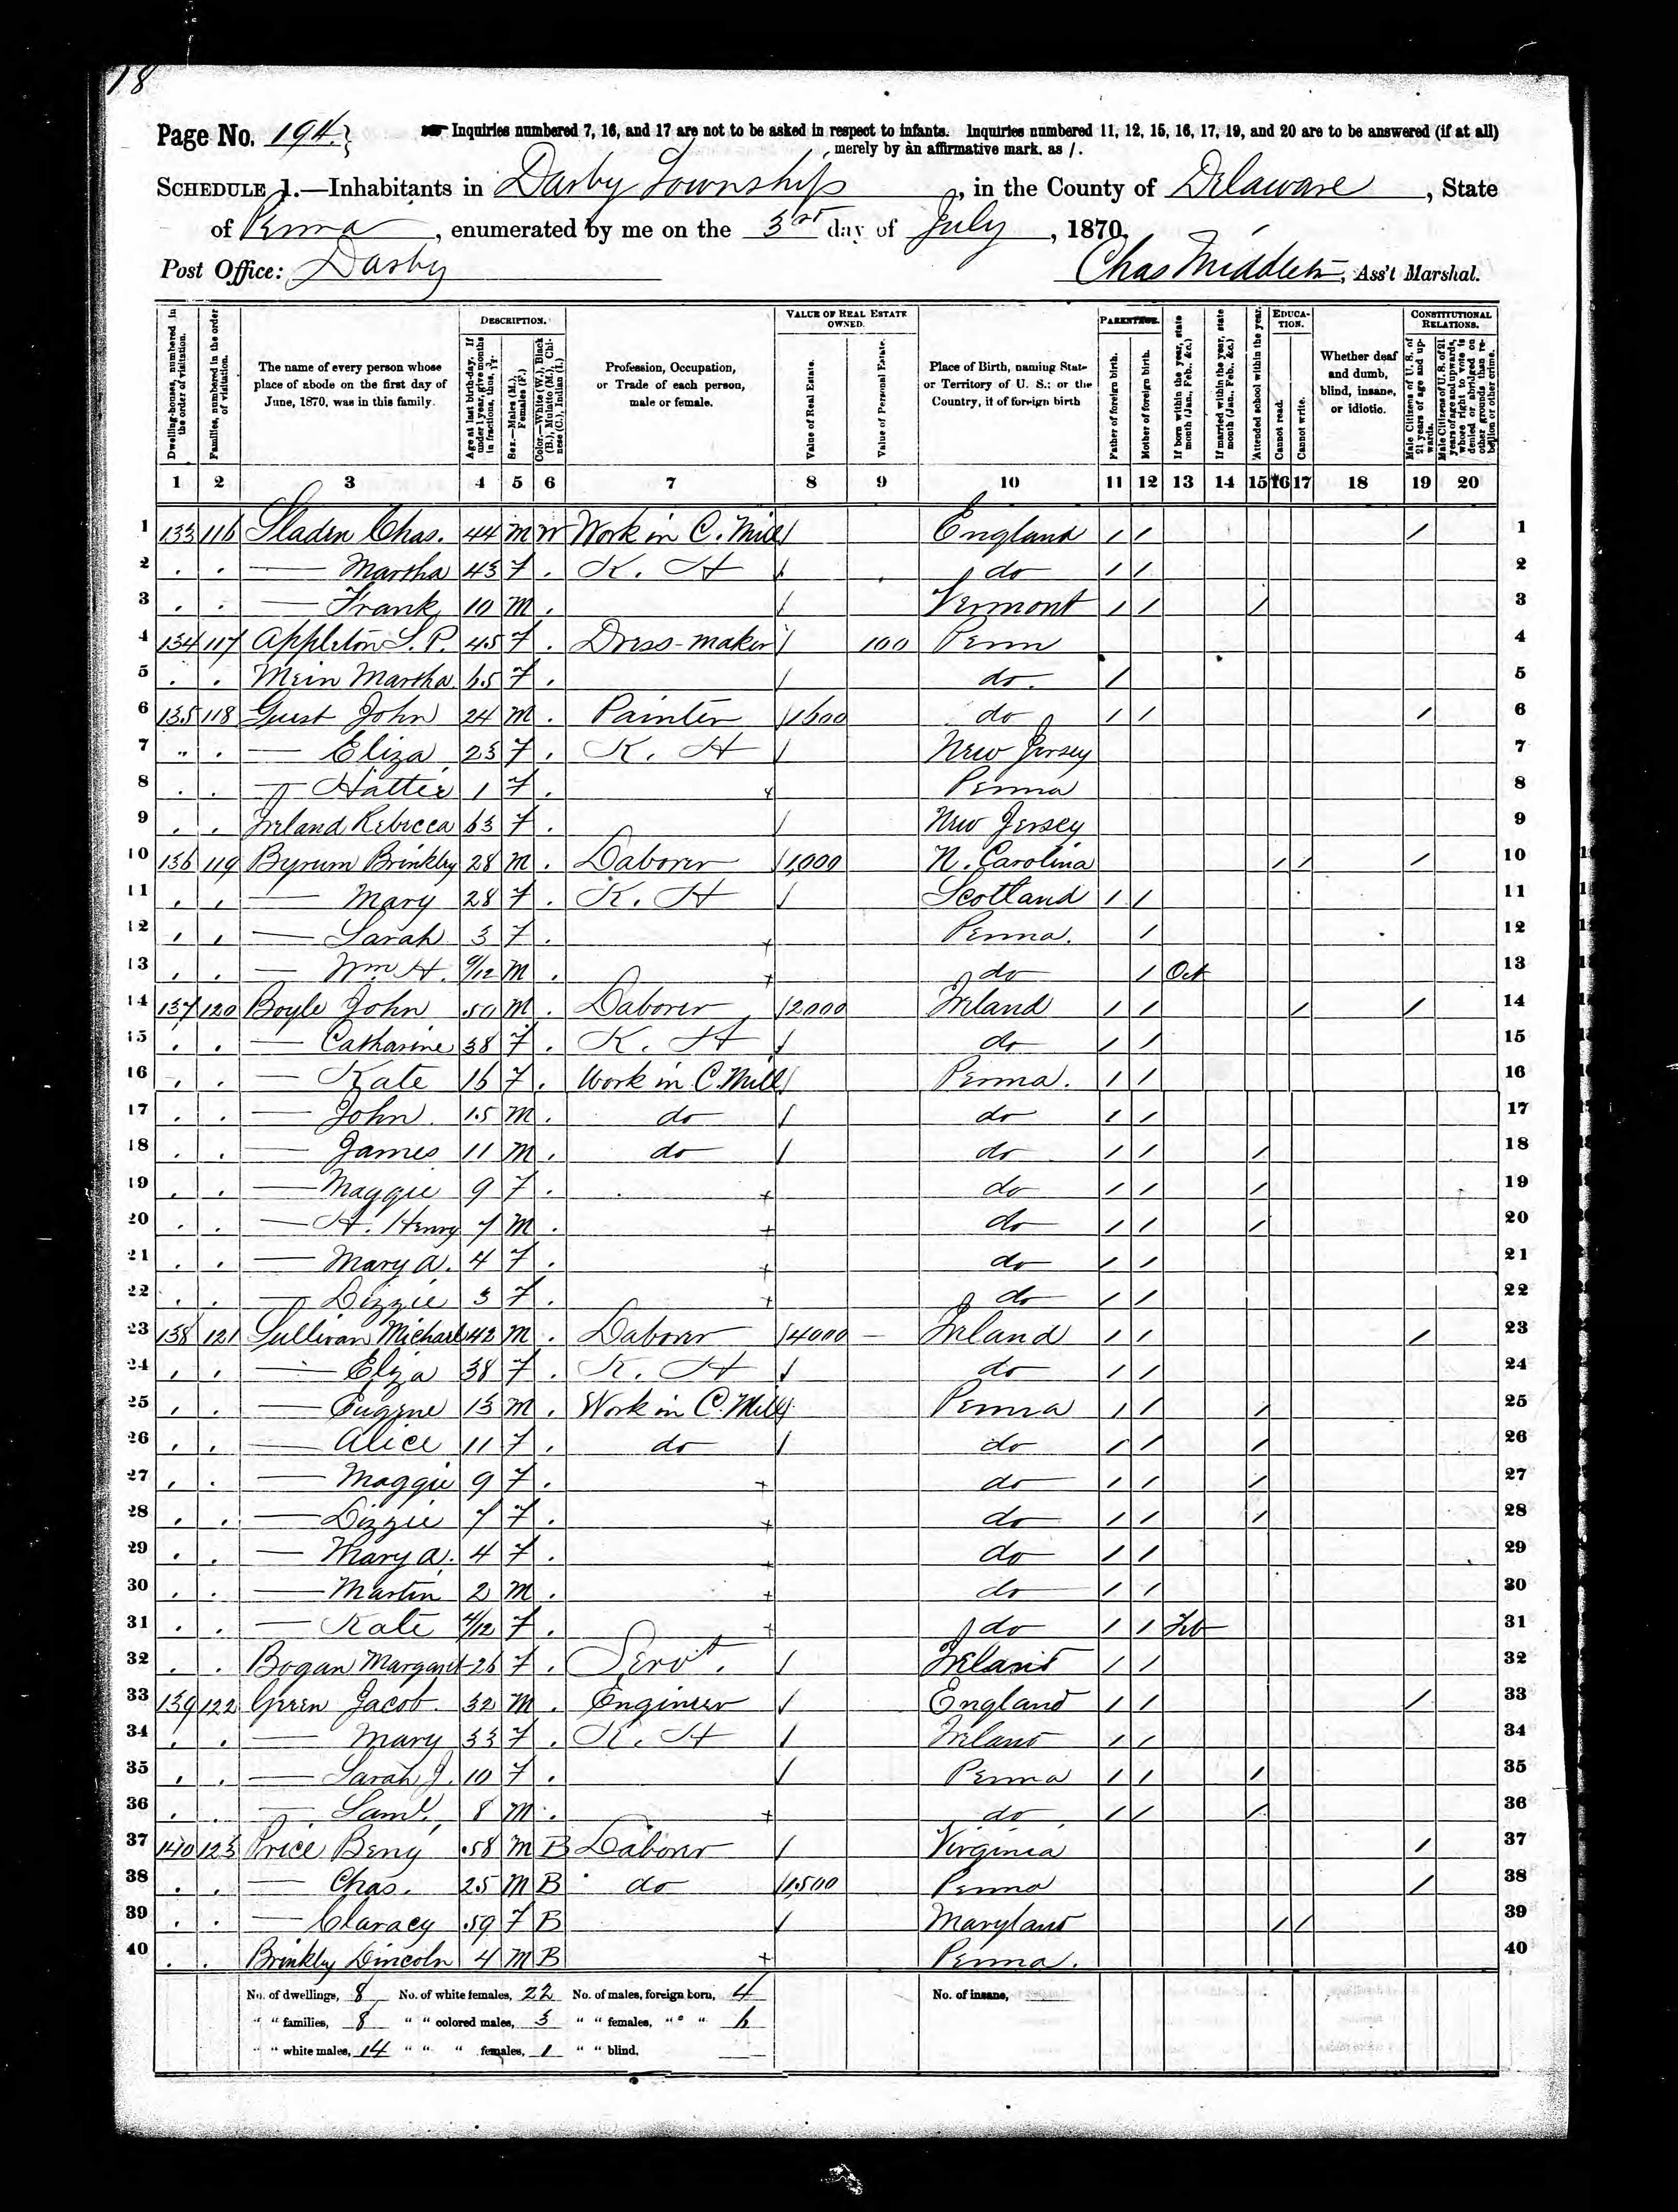 18
Page No. 194. Inquiries numbered 7, 16, and 17 are not to be asked in respect to infants. Inquiries numbered 11, 12, 15, 16, 17, 19, and 20 are to be answered (if at all)
merely by an affirmative mark, as /.
SCHEDULE 1.—Inhabitants in Darby Township, in the County of Delaware, State
of Penna, enumerated by me on the 3rd day of July, 1870.
Post Office: Darby Chas Middleton, Ass't Marshal.
Dwelling-houses, numbered in the order of visitation.
Families, numbered in the order of visitation.
The name of every person whose place of abode on the first day of June, 1870, was in this family.
DESCRIPTION.
Age at last birth-day. If under 1 year, give months in fractions, thus, 3/12.
Sex.—Males (M.), Females (F.)
Color.—White (W.), Black (B.), Mulatto (M.), Chinese (C.), Indian (I.)
Profession, Occupation, or Trade of each person, male or female.
VALUE OF REAL ESTATE OWNED.
Value of Real Estate.
Value of Personal Estate.
Place of Birth, naming State or Territory of U. S.; or the Country, if of foreign birth
PARENTAGE.
Father of foreign birth.
Mother of foreign birth.
If born within the year, state month (Jan., Feb., &c.)
If married within the year, state month (Jan., Feb., &c.)
Attended school within the year.
EDUCATION.
Cannot read.
Cannot write.
Whether deaf and dumb, blind, insane, or idiotic.
CONSTITUTIONAL RELATIONS.
Male Citizens of U. S. of 21 years of age and upwards.
Male Citizens of U. S. of 21 years of age and upwards, whose right to vote is denied or abridged on other grounds than rebellion or other crime.
1 2 3 4 5 6 7 8 9 10 11 12 13 14 15 16 17 18 19 20
1 133 116 Sladen Chas. 44 M W Work in C. Mill / England / / / 1
2 . . — Martha 43 F . K. H / do / / 2
3 . . — Frank 10 M . / Vermont / / / 3
4 134 117 Appleton S. P. 45 F . Dress-maker / 100 Penn 4
5 . . Mein Martha 65 F . / do. / 5
6 135 118 Guest John 24 M . Painter / 1600 do / / / 6
7 " . — Eliza 23 F . K. H / New Jersey 7
8 . . — Hattie 1 F . + Penna 8
9 . . Ireland Rebecca 63 F . / New Jersey 9
10 136 119 Byrum Brinkley 28 M . Laborer / 1,000 N. Carolina / / / 10
11 . . — Mary 28 F . K. H / Scotland / / 11
12 . . — Sarah 3 F . + Penna. / 12
13 . . — Wm H. 9/12 M . + do / Oct 13
14 137 120 Boyle John 50 M . Laborer / 2000 Ireland / / / / 14
15 . . — Catharine 38 F . K. H / do / / 15
16 . . — Kate 16 F . Work in C. Mill / Penna. / / 16
17 . . — John 15 M . do / do / / 17
18 . . — James 11 M . do / do / / / 18
19 . . — Maggie 9 F . + do / / / 19
20 . . — H. Henry 7 M . + do / / / 20
21 . . — Mary A. 4 F . + do / / 21
22 . . — Lizzie 3 F . + do / / 22
23 138 121 Sullivan Michael 42 M . Laborer / 4000 — Ireland / / / 23
24 . . — Eliza 38 F . K. H / do / / 24
25 . . — Eugene 13 M . Work in C. Mill / Penna / / / 25
26 . . — Alice 11 F . do / do / / / 26
27 . . — Maggie 9 F . + do / / / 27
28 . . — Lizzie 7 F . + do / / / 28
29 . . — Mary A. 4 F . + do / / 29
30 . . — Martin 2 M . + do / / 30
31 . . — Kate 4/12 F . + do / / Feb 31
32 . . Bogan Margaret 26 F . Servt. / Ireland / / 32
33 139 122 Green Jacob 32 M . Engineer / England / / / 33
34 . . — Mary 33 F . K. H / Ireland / / 34
35 . . — Sarah J. 10 F . / Penna / / / 35
36 . . — Saml. 8 M . + do / / / 36
37 140 123 Price Benj 58 M B Laborer / Virginia / 37
38 . . — Chas. 25 M B do / 1,500 Penna / 38
39 . . — Claracy 59 F B / Maryland / / 39
40 . . Brinkley Lincoln 4 M B + Penna. 40
No. of dwellings, 8 No. of white females, 22 No. of males, foreign born, 4 No. of insane,
" " families, 8 " " colored males, 3 " " females, " " 6
" " white males, 14 " " " females, 1 " " blind,